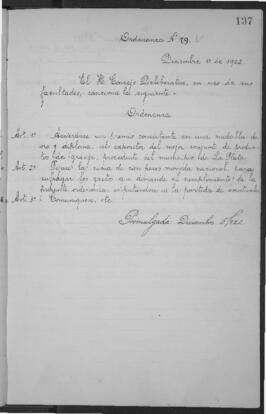 137
Ordenanza Nº 79.
Diciembre 1º de 1922
El H. Consejo Deliberativo, en uso de sus
facultades, sanciona la siguiente
Ordenanza
Art. 1º Acuérdase un premio consistente en una medalla de
oro y diploma, al expositor del mejor conjunto de produc-
tos de granja, procedente del municipio de La Plata.
Art. 2º Fíjase la suma de cien pesos moneda nacional, para
sufragar los gastos que demande el cumplimiento de la
presente ordenanza, imputándose a la partida de eventuales
Art. 3º Comuníquese, etc.
Promulgada Diciembre 5/922